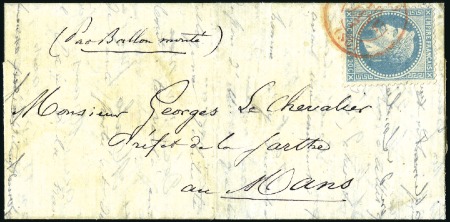 (Par Ballon monté)
Monsieur Georges Le Chevalier
Préfet de la Sarthe
au Mans